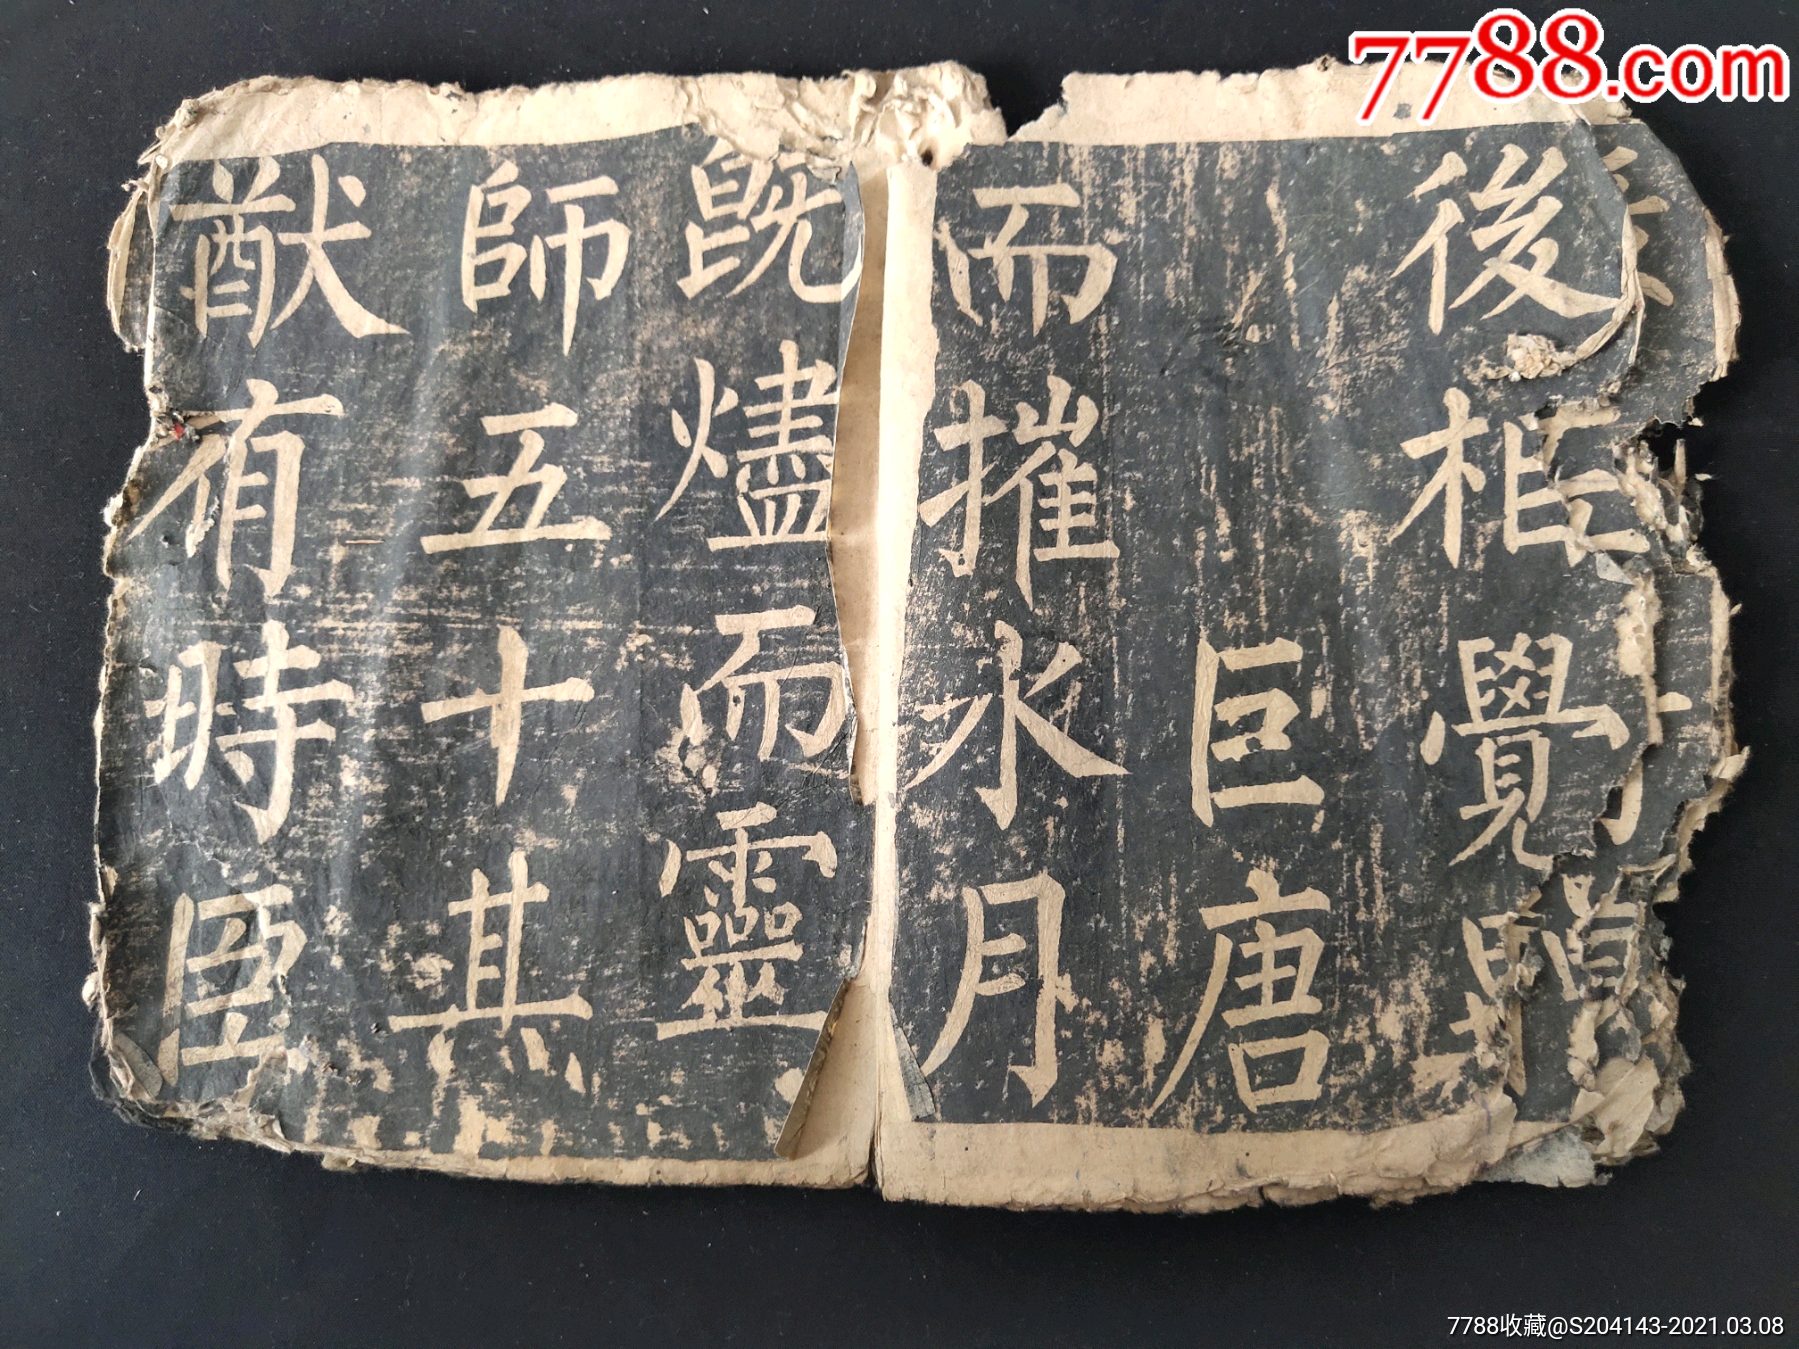 7788.com
後覺
巨唐
而摧水月
既燼而靈
師五十其
猷有時
7788收藏@S204143-2021.03.08